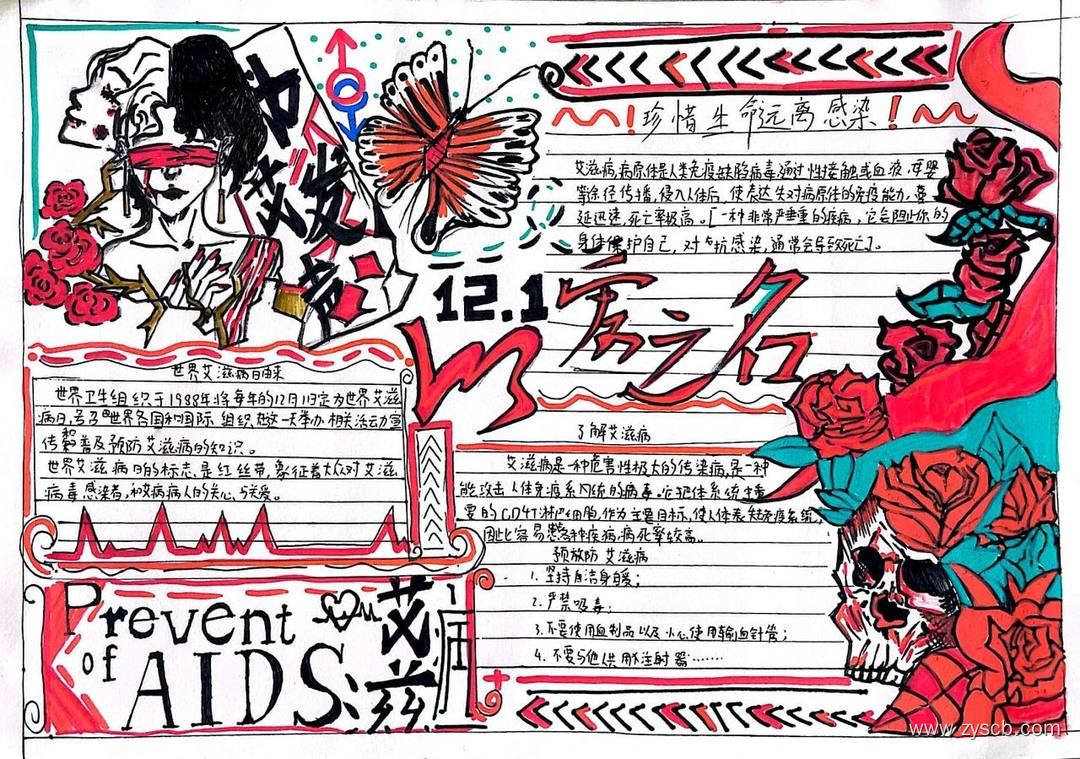 为艾发声
12.1
以病之名
珍惜生命远离感染!
艾滋病,病原体是人类免疫缺陷病毒,通过性接触或血液,母婴
等途径传播,侵入人体后,使表达失对病原体的免疫能力,蔓
延迅速,死亡率极高。[一种非常严重的疾病,它会阻止你的
身体保护自己,对抗感染,通常会导致死亡]。
世界艾滋病日由来
世界卫生组织于1988年将每年的12月1日定为世界艾滋
病日,号召世界各国和国际组织在这一天举办相关活动,宣
传和普及预防艾滋病的知识。
世界艾滋病日的标志是红丝带,象征着大众对艾滋
病毒感染者,和艾病病人的关心与关爱。
了解艾滋病
艾滋病是一种危害性极大的传染病,是一种
能攻击人体免疫系统的病毒。它把体系统重
要的CD4T淋巴细胞作为主要目标,使人体丧失免疫系统,
因此容易患各种疾病,病死率较高。
预放防艾滋病
1.坚持自洁身爱;
2.严禁吸毒;
3.不要使用血制品以及小心使用输血针管;
4.不要与他人共用注射器……
Prevent
of AIDS:
艾滋病
www.zyscb.com